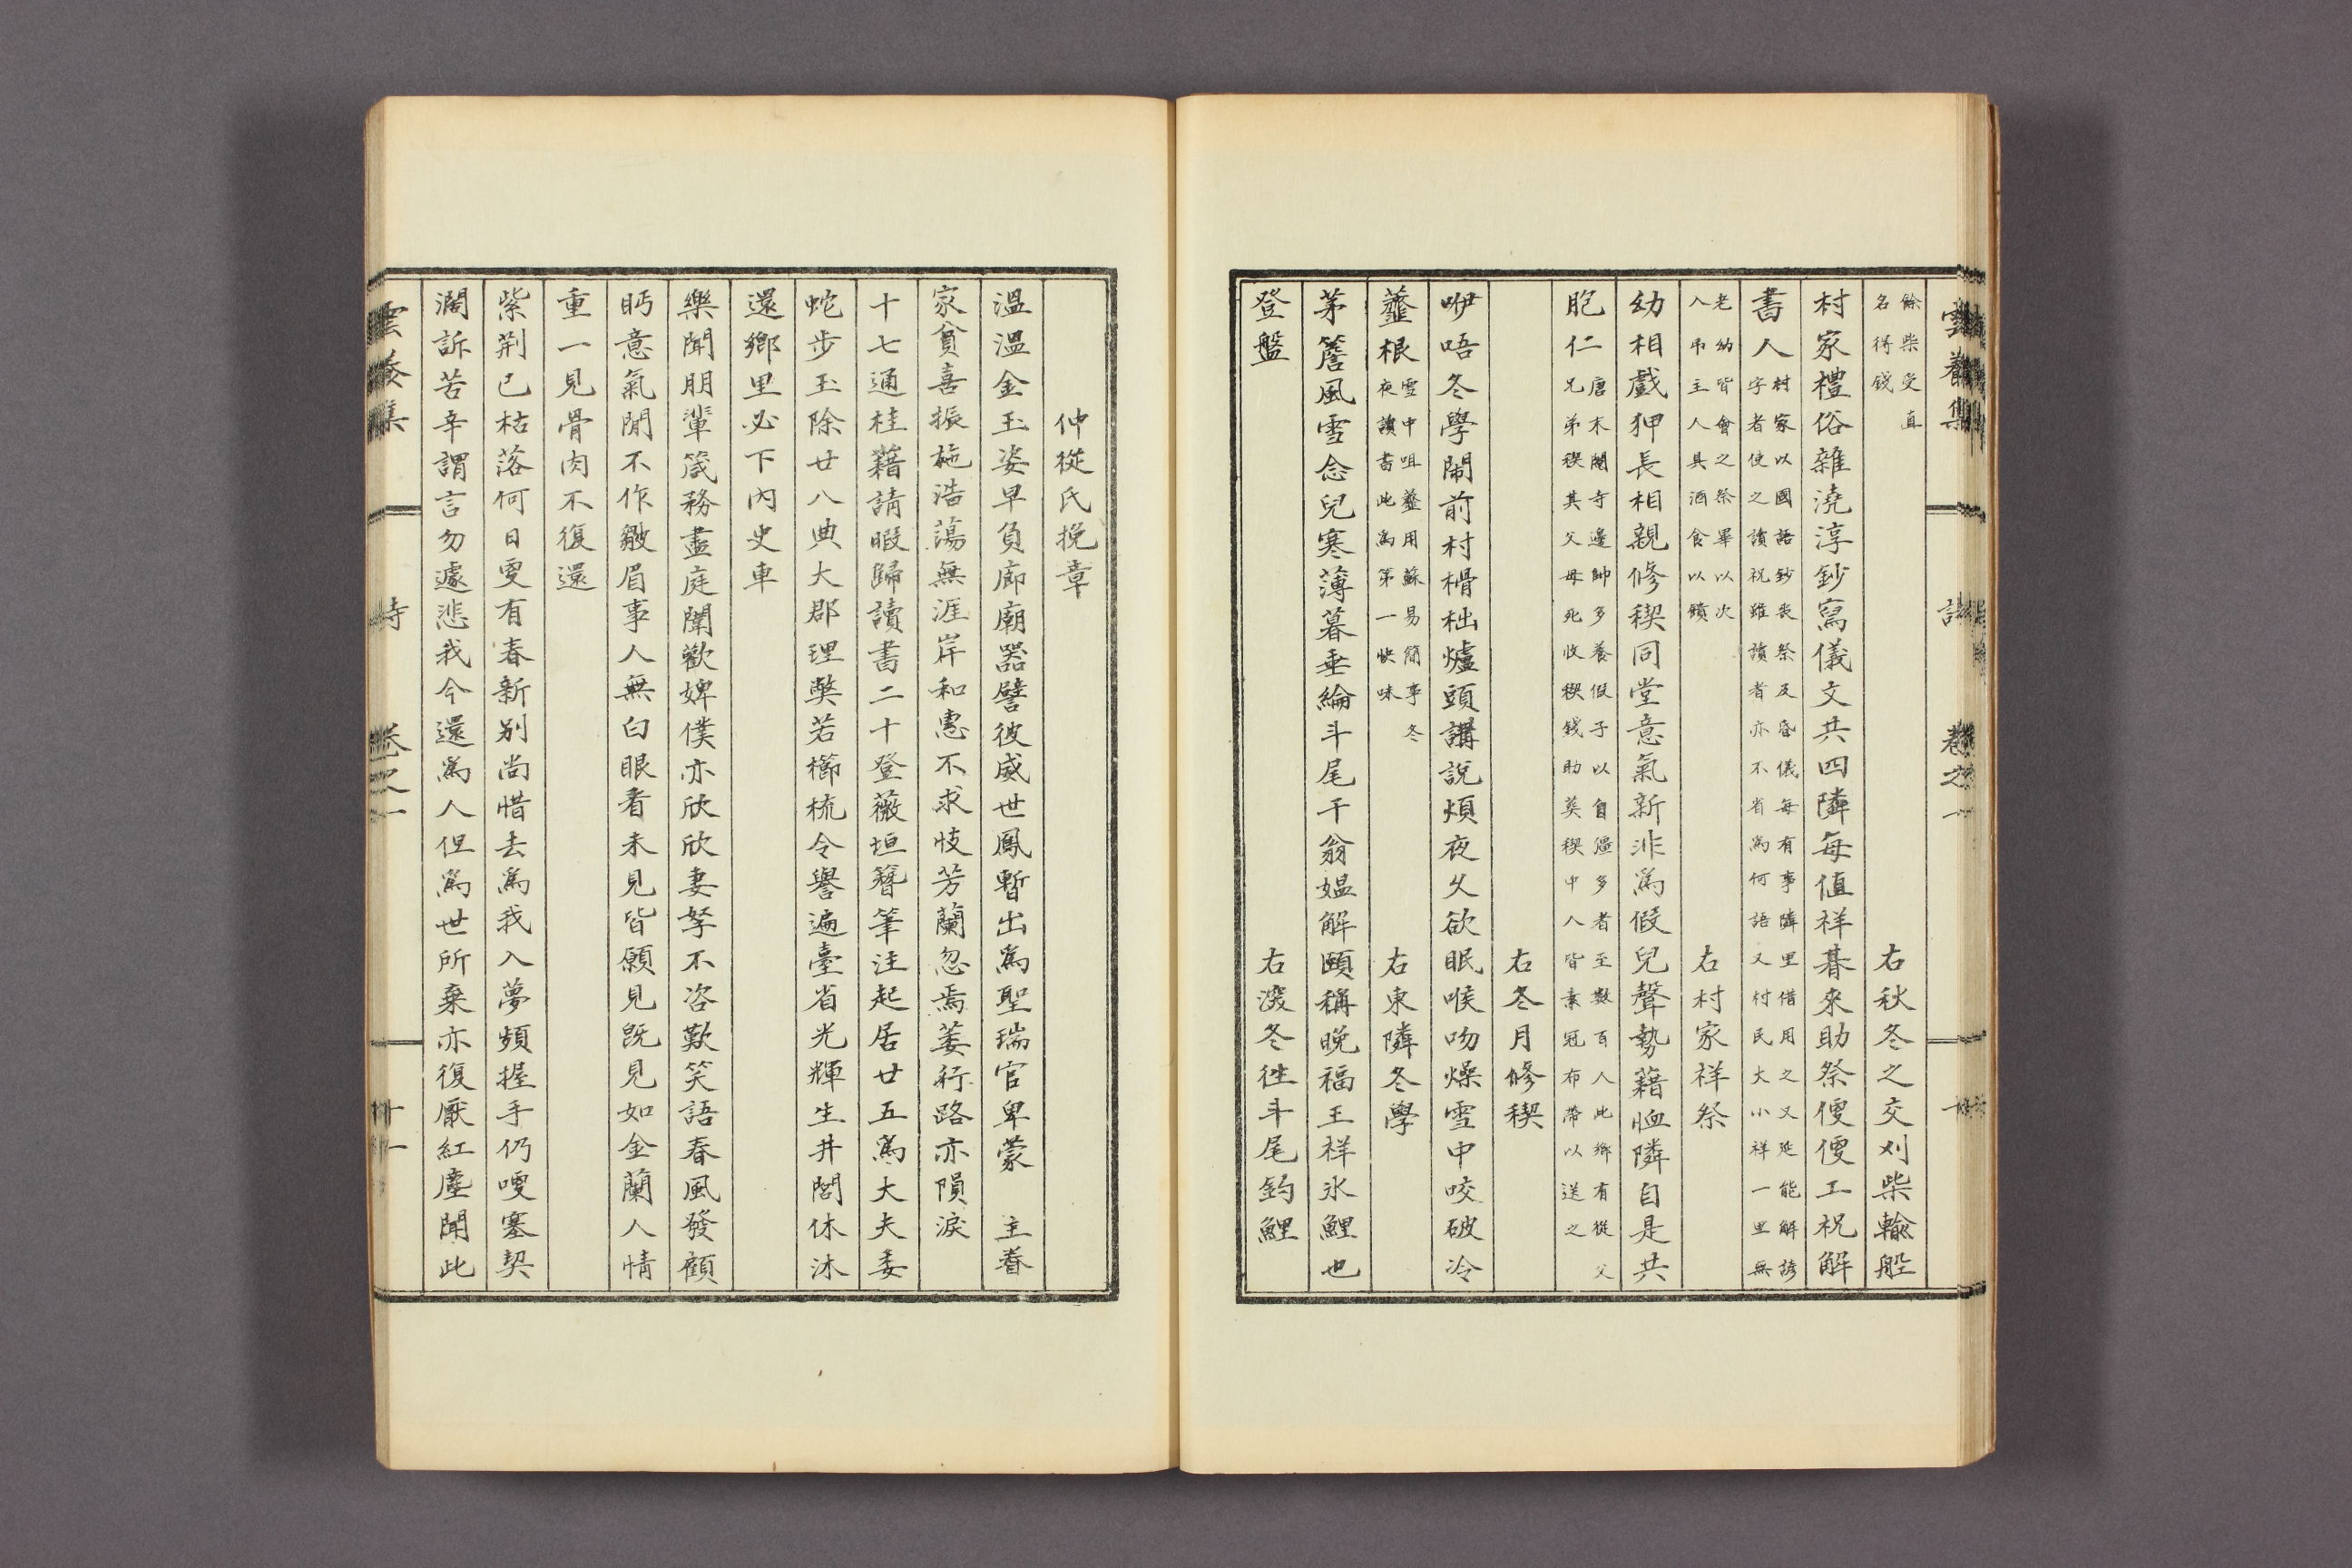 雲養集 詩 卷之一
餘柴受直
名得錢
右秋冬之交刈柴輸船
村家禮俗雜澆淳鈔寫儀文共四隣每值祥朞來助祭傻傻工祝解
書人
村家以國語鈔喪祭及昏儀每有事隣里借用之又延能解諺
字者使之讀祝雖讀者亦不省爲何語又村民大小祥一里無
老幼皆會之祭畢以次
入吊主人具酒食以饋
右村家祥祭
幼相戲狎長相親修稧同堂意氣新非爲假兒聲勢藉恤隣自是共
胞仁
唐末閹寺邊帥多養假子以自彊多者至數百人此鄉有從父
兄弟稧其父母死收稧錢助葬稧中人皆素冠布帶以送之
右冬月修稧
咿唔冬學鬧前村榾柮爐頭講說煩夜久欲眠喉吻燥雪中咬破冷
虀根
雪中咀虀用蘇易簡事冬
夜讀書此爲第一快味
右東隣冬學
茅簷風雪念兒寒薄暮垂綸斗尾干翁媼解頤稱晚福王祥氷鯉也
登盤
右深冬往斗尾釣鯉
仲從氏挽章
溫溫金玉姿早負廊廟器譬彼威世鳳暫出爲聖瑞官卑蒙 主眷
家貧喜振施浩蕩無涯岸和惠不求忮芳蘭忽焉萎行路亦隕淚
十七通桂藉請暇歸讀書二十登薇垣簪筆注起居廿五爲大夫委
蛇步玉除廿八典大郡理獘若櫛梳令譽遍臺省光輝生井閭休沐
還鄉里必下內史車
樂聞朋輩箴務盡庭闈歡婢僕亦欣欣妻孥不咨歎笑語春風發顧
眄意氣閒不作皺眉事人無白眼看未見皆願見旣見如金蘭人情
重一見骨肉不復還
紫荆已枯落何日更有春新别尚惜去爲我入夢頻握手仍哽塞契
濶訴苦辛謂言勿遽悲我今還爲人但爲世所棄亦復厭紅塵聞此
雲養集 詩 卷之一 十一